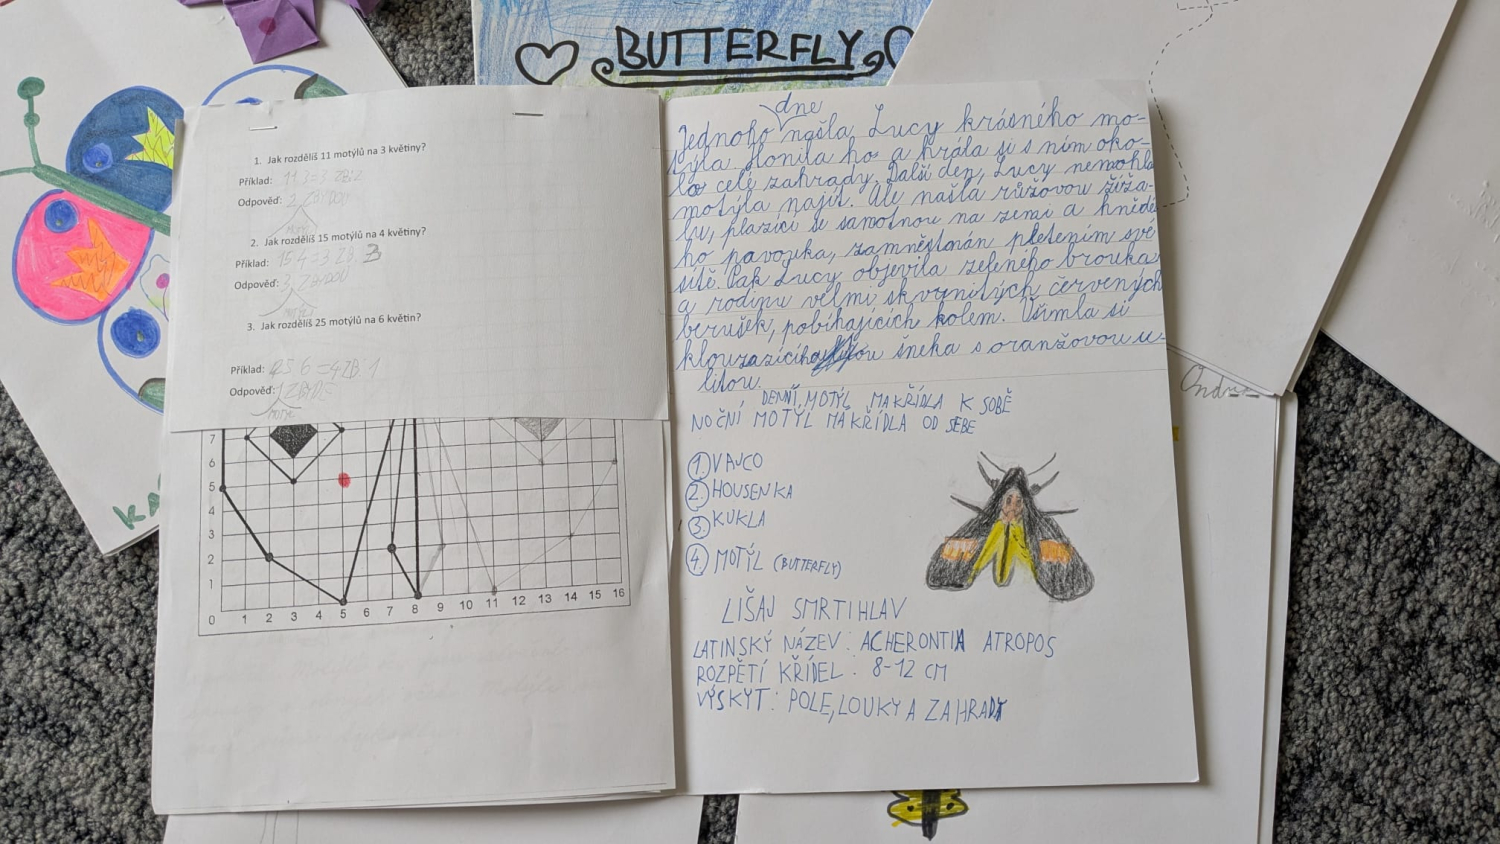 BUTTERFLY
1. Jak rozdělíš 11 motýlů na 3 květiny?
Příklad: 11:3=3 ZB:2
Odpověď: 2 ZBYDOU
MOTÝLI
2. Jak rozdělíš 15 motýlů na 4 květiny?
Příklad: 15:4=3 ZB. 3
Odpověď: 3 ZBYDOU
MOTÝLI
3. Jak rozdělíš 25 motýlů na 6 květin?
Příklad: 25:6=4 ZB:1
Odpověď: 1 ZBYDE
MOTÝL
7
6
5
4
3
2
1
0 1 2 3 4 5 6 7 8 9 10 11 12 13 14 15 16
dne
Jednoho našla Lucy krásného mo-
týla. Honila ho a hrála si s ním oko-
lo celé zahrady. Další den, Lucy nemohla
motýla najít. Ale našla růžovou žíža-
lu, plazící se samotnou na zemi a hnědé-
ho pavouka, zamněstnán pletením své
sítě. Pak Lucy objevila zeleného brouka
a rodinu velmi skvrnitých červených
berušek, pobíhajících kolem. Všimla si
šneka s oranžovou u-
litou.
DENNÍ MOTÝL MA KŘÍDLA K SOBĚ
NOČNÍ MOTÝL MÁ KŘÍDLA OD SEBE
1. VAJCO
2. HOUSENKA
3. KUKLA
4. MOTÝL (BUTTERFLY)
LIŠAJ SMRTIHLAV
LATINSKÝ NÁZEV: ACHERONTIA ATROPOS
ROZPĚTÍ KŘÍDEL: 8-12 CM
VÝSKYT: POLE, LOUKY A ZAHRADY